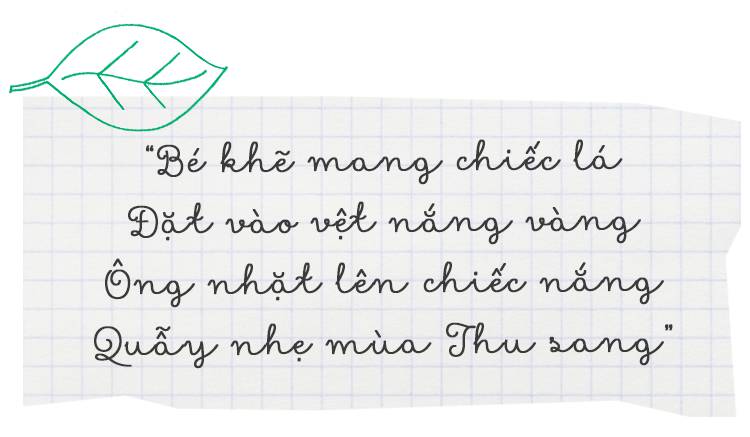 “Bé khẽ mang chiếc lá
Đặt vào vệt nắng vàng
Ông nhặt lên chiếc nắng
Quẫy nhẹ mùa Thu sang”